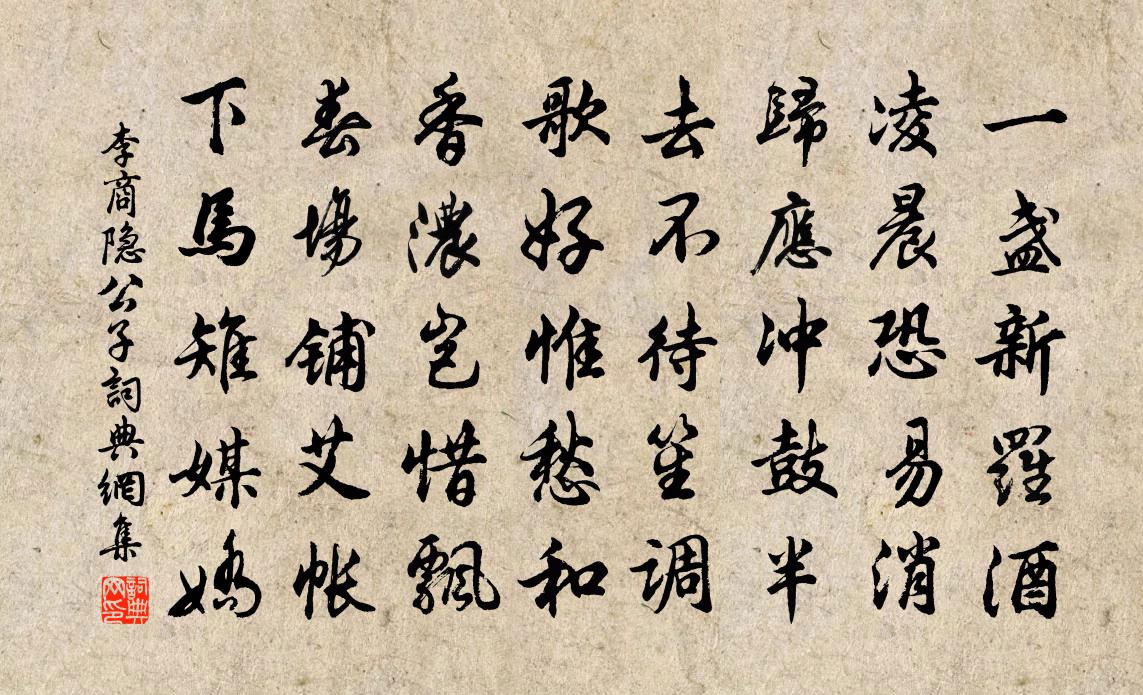 一盏新羅酒
凌晨恐易消
歸應冲鼓半
去不待笙调
歌好惟愁和
香濃岂惜飄
春場鋪艾帐
下馬雉媒嬌
李商隐公子詞典網集
詞典网印